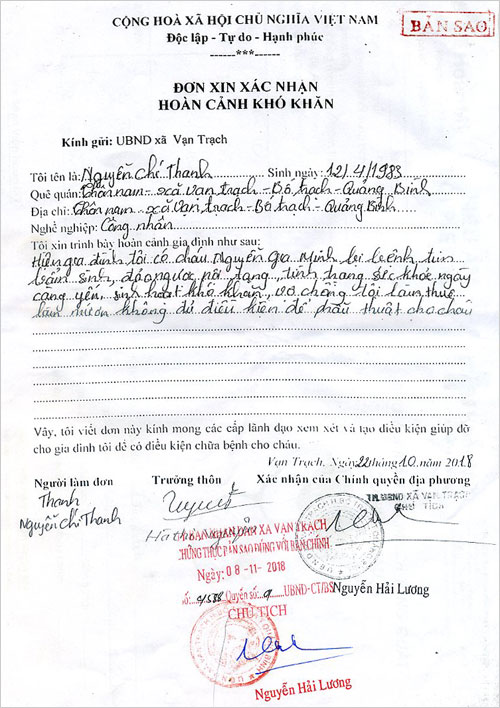 CỘNG HOÀ XÃ HỘI CHỦ NGHĨA VIỆT NAM
BẢN SAO
Độc lập - Tự do - Hạnh phúc
-----***-----
ĐƠN XIN XÁC NHẬN
HOÀN CẢNH KHÓ KHĂN
Kính gửi: UBND xã Vạn Trạch
Tôi tên là: Nguyễn Chí Thanh Sinh ngày: 12/4/1983
Quê quán: Thôn nam - xã vạn trạch - Bố trạch - Quảng Bình
Địa chỉ: Thôn nam - xã Vạn trạch - Bố trạch - Quảng Bình
Nghề nghiệp: Công nhân
Tôi xin trình bày hoàn cảnh gia đình như sau:
Hiện gia đình tôi có cháu Nguyễn Gia Minh bị bệnh tim
bẩm sinh, đảo ngược nội tạng, tình trạng sức khỏe ngày
càng yếu, sinh hoạt khó khăn, vợ chồng tôi làm thuê
làm mướn không đủ điều kiện để phẫu thuật cho cháu
Vây, tôi viết đơn này kính mong các cấp lãnh đạo xem xét và tạo điều kiện giúp đỡ
cho gia đình tôi để có điều kiện chữa bệnh cho cháu.
Vạn Trạch, Ngày 22 tháng 10 năm 2018
Người làm đơn Trưởng thôn Xác nhận của Chính quyền địa phương
TM. UBND XÃ VẠN TRẠCH
CHỦ TỊCH
Thanh
Nguyễn Chí Thanh
ỦY BAN NHÂN DÂN XÃ VẠN TRẠCH
CHỨNG THỰC BẢN SAO ĐÚNG VỚI BẢN CHÍNH
Ngày: 08-11-2018
Số: Quyển số: 9 UBND-CT/BS
Nguyễn Hải Lương
CHỦ TỊCH
Nguyễn Hải Lương